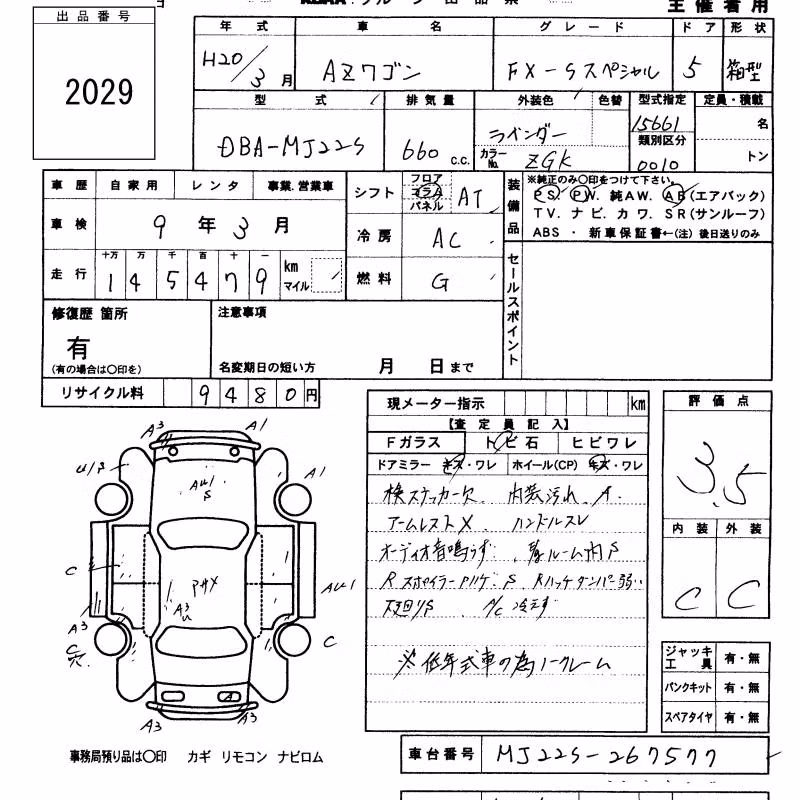 主催者用
出品番号
2029
年式 車名 グレード ドア 形状
H20/3月 AZワゴン FX-Sスペシャル 5 箱型
型式 排気量 外装色 色替 型式指定 定員・積載
DBA-MJ22S 660 c.c. ラベンダー 15661 名
カラーNo. ZGK 類別区分 0010 トン
車歴 自家用 レンタ 事業.営業車
車検 9年3月
走行 十万 万 千 百 十 一
145479 km マイル
シフト フロア コラム パネル AT
冷房 AC
燃料 G
装備品
※純正のみ〇印をつけて下さい。
PS. PW. 純AW. AB(エアバック)
TV. ナビ. カワ. SR(サンルーフ)
ABS ・ 新車保証書←(注) 後日送りのみ
セールスポイント
修復歴 箇所
有
(有の場合は〇印を)
注意事項
名変期日の短い方 月 日まで
リサイクル料 9480円
現メーター指示 km
【査定員記入】
Fガラス トビ石 ヒビワレ
ドアミラー キズ・ワレ ホイール(CP) キズ・ワレ
検ステッカー欠 内装汚れ
アームレスト× ハンドルスレ
オーディオ音鳴らず ルーム内S
Rスポイラー S Rハッチダンパー弱
下廻りS A/C冷えず
※低年式車の為ノークレーム
評価点
3.5
内装 外装
C C
ジャッキ工具 有・無
パンクキット 有・無
スペアタイヤ 有・無
A3 A1
U1S A1
AU1
S
C アサメ AU1
A3
U
A3
C C
穴.
A
A3 A3
事務局預り品は〇印 カギ リモコン ナビロム
車台番号 MJ22S-267577